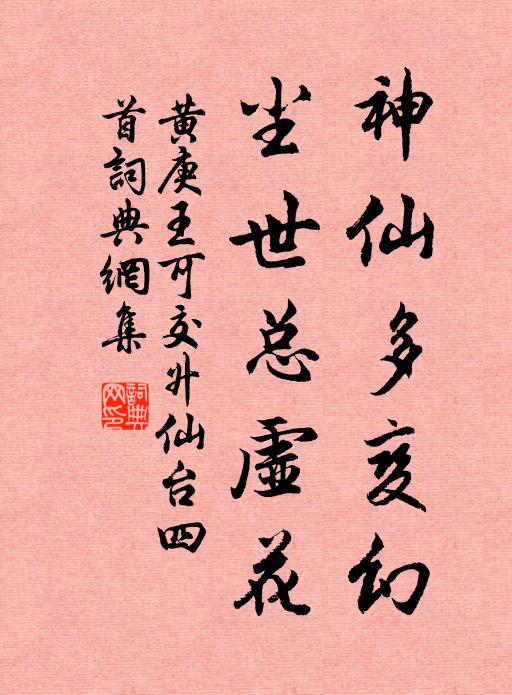 神仙多变幻
尘世总虚花
黄庚王可交升仙台四
首詞典網集
詞典
网印